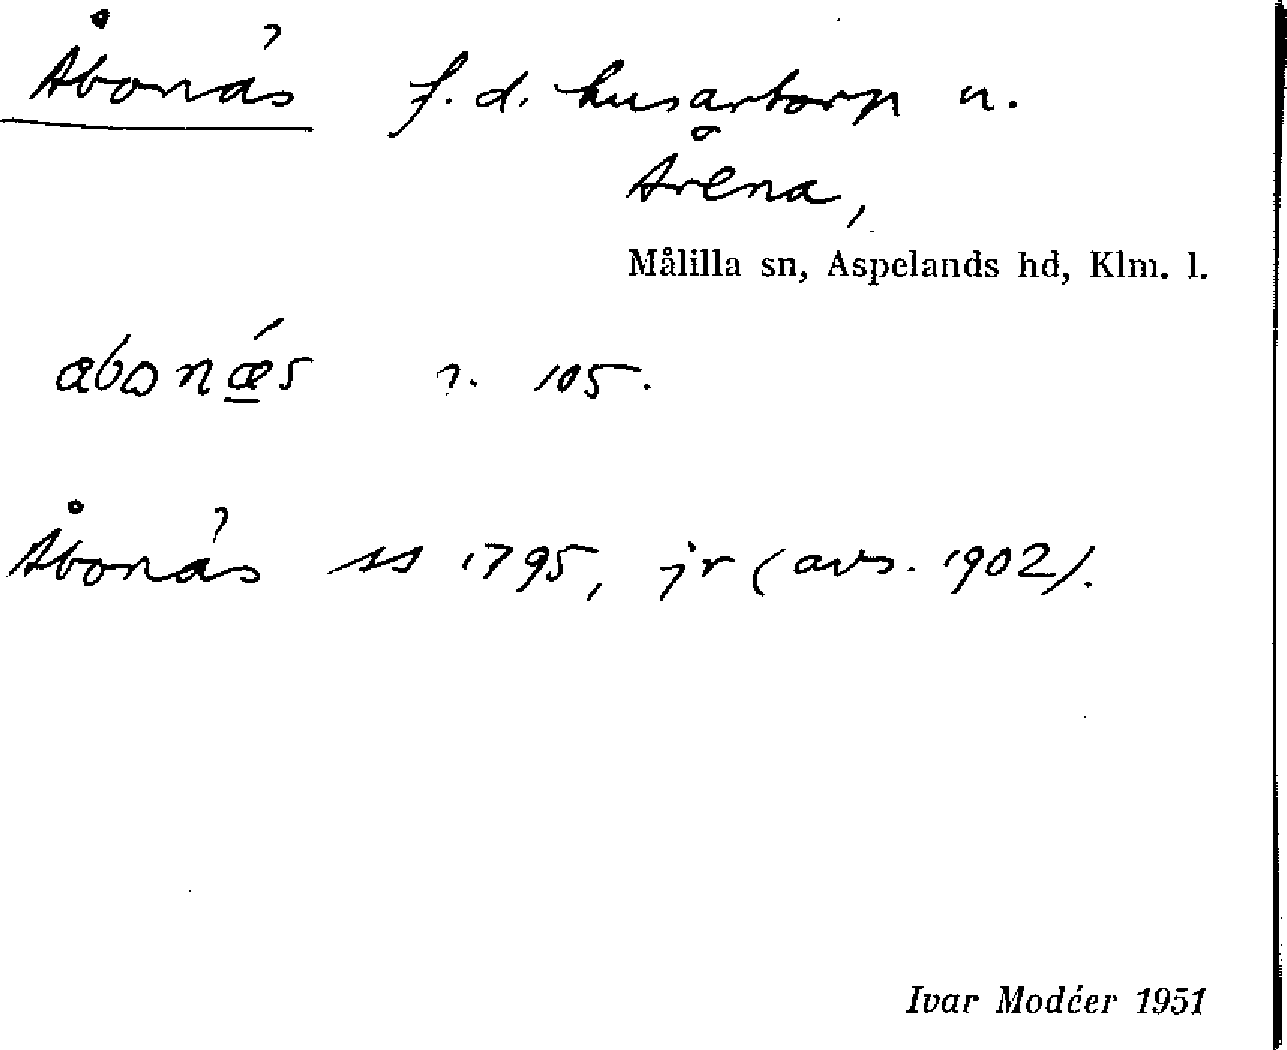 Åbonäs f. d. husartorp u.
Årena,
Målilla sn, Aspelands hd, Klm. l.
abonǽs 105.
Åbonäs ss 1795, jr (avs. 1902).
Ivar Modéer 1951